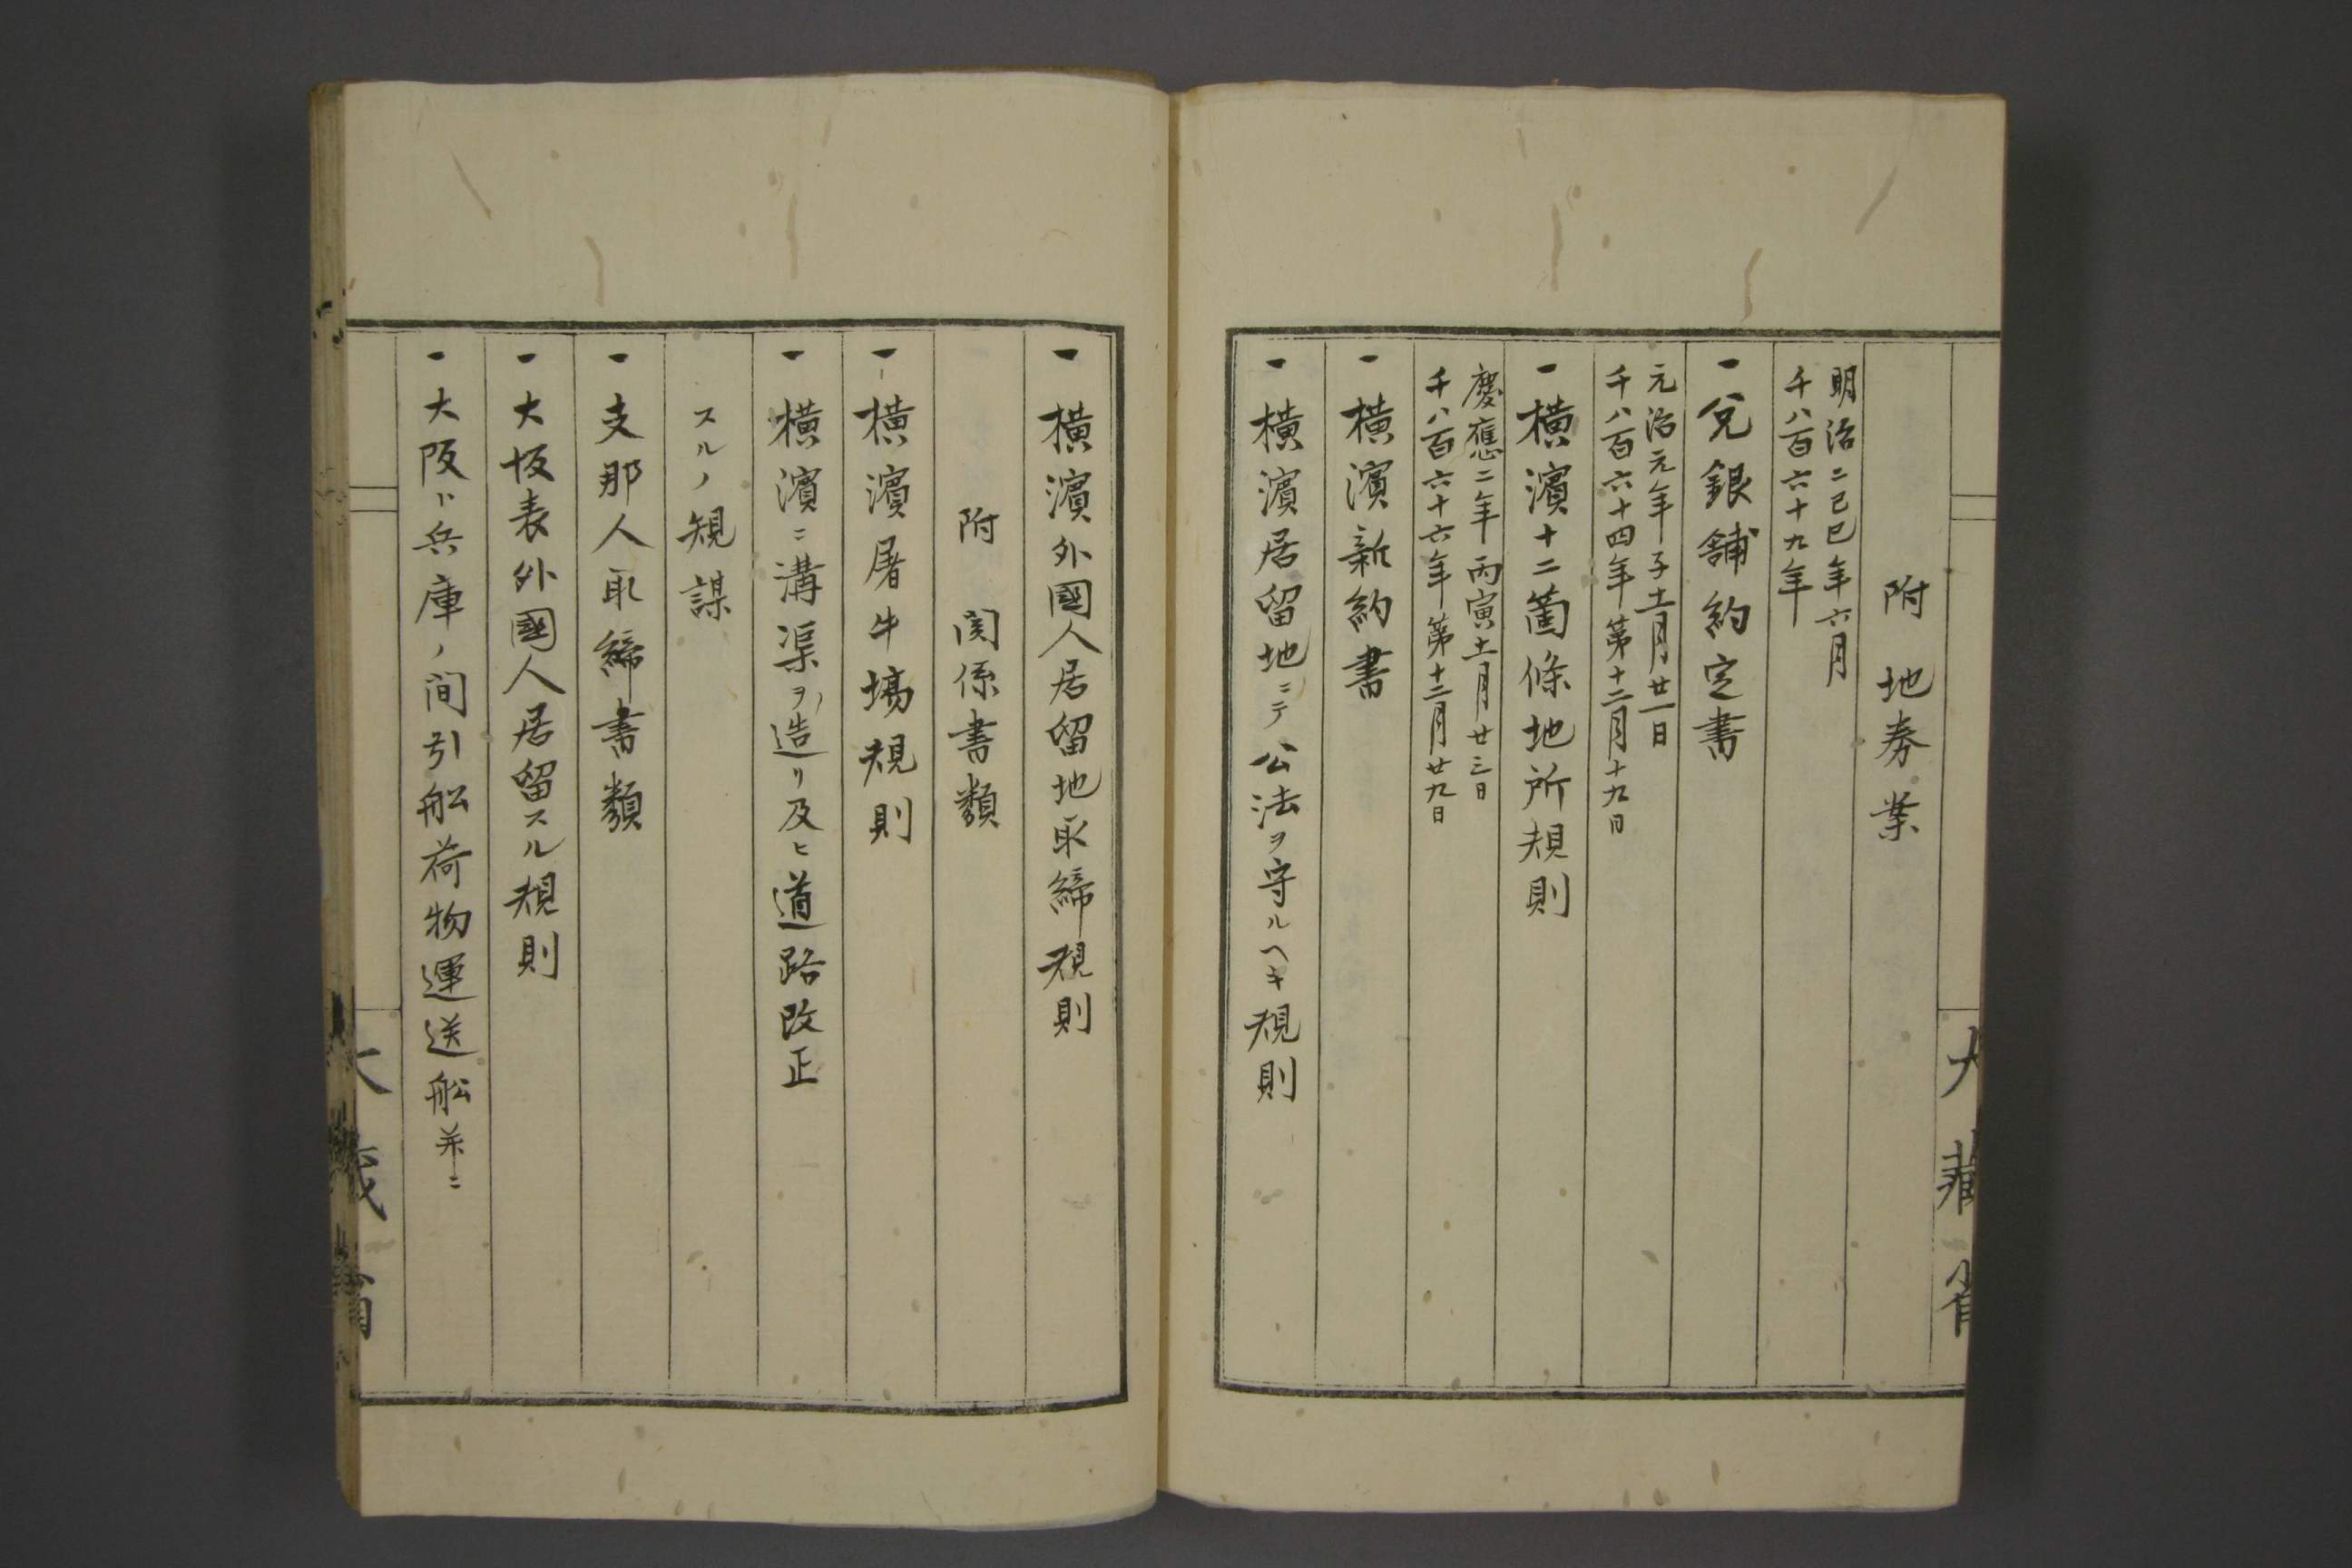 大藏省
附地券業
明治二己巳年六月
千八百六十九年
一兌銀舗約定書
元治元年子十一月廿一日
千八百六十四年第十二月十九日
一橫濱十二箇條地所規則
慶應二年丙寅十一月廿三日
千八百六十六年第十二月廿九日
一橫濱新約書
一橫濱居留地ニテ公法ヲ守ルヘキ規則
一橫濱外國人居留地取締規則
附関係書類
一橫濱屠牛場規則
一橫濱ニ溝渠ヲ造リ及ヒ道路改正
スルノ規謀
一支那人取締書類
一大坂表外國人居留スル規則
一大阪ト兵庫ノ間引舩荷物運送舩并ニ
大藏省